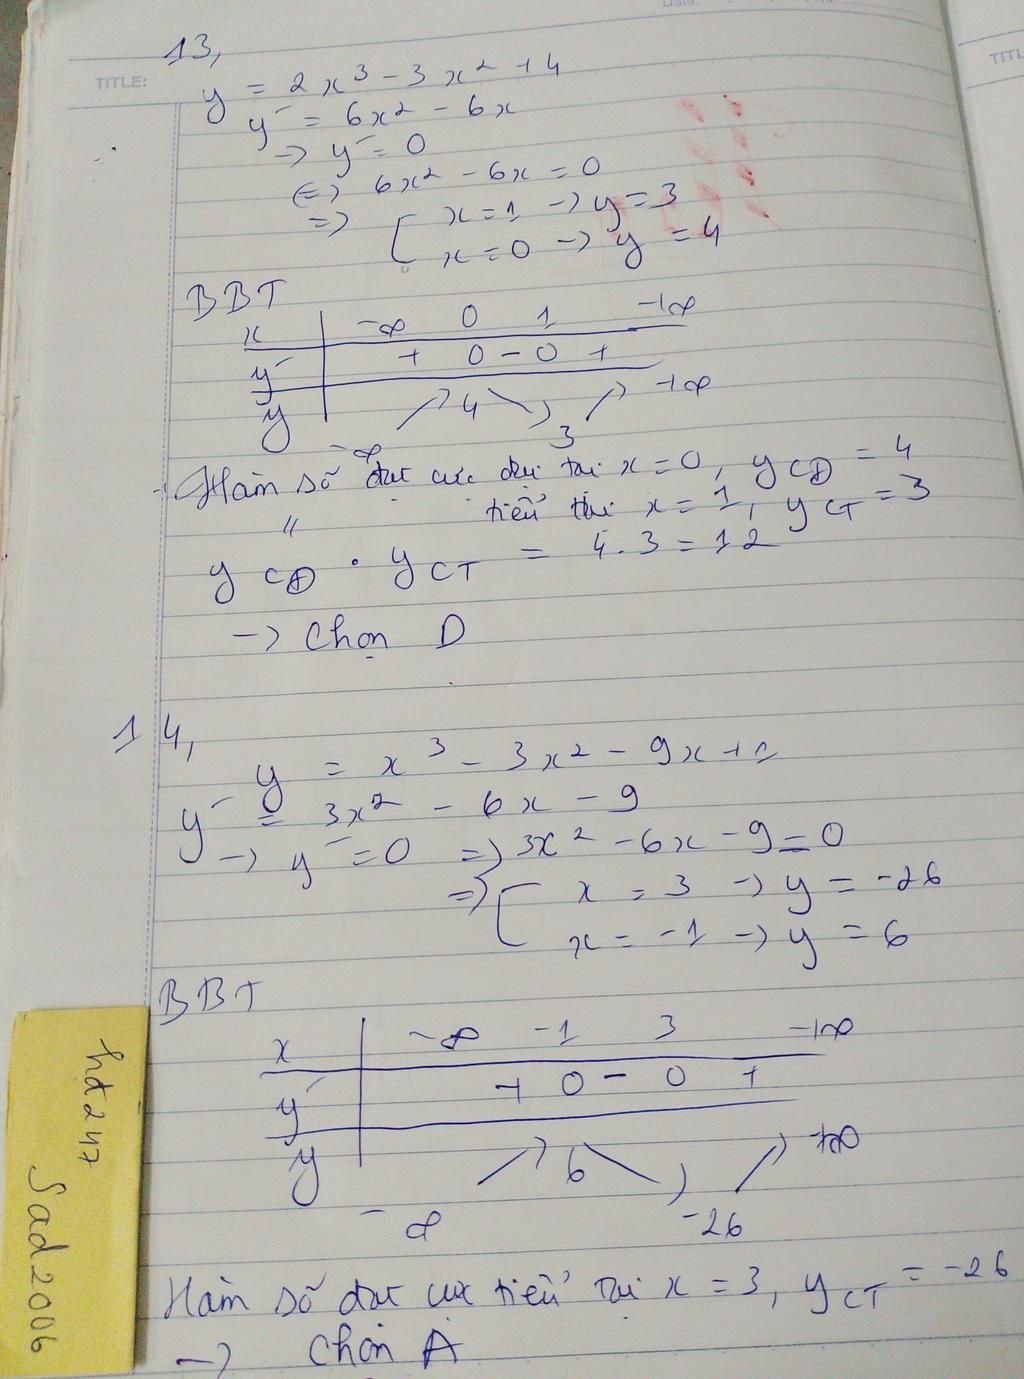 TITLE:
13,
y = 2x³ - 3x² + 4
y' = 6x² - 6x
→ y' = 0
⇔ 6x² - 6x = 0
⇒ [ x = 1 → y = 3
x = 0 → y = 4
BBT
x -∞ 0 1 +∞
y' + 0 - 0 +
y -∞ ↗ 4 ↘ 3 ↗ +∞
Hàm số đạt cực đại tại x = 0, yCĐ = 4
" tiểu tại x = 1, yCT = 3
yCĐ . yCT = 4.3 = 12
→ Chọn D
14,
y = x³ - 3x² - 9x + 1
y' = 3x² - 6x - 9
→ y' = 0 ⇒ 3x² - 6x - 9 = 0
⇒ [ x = 3 → y = -26
x = -1 → y = 6
BBT
x -∞ -1 3 +∞
y' + 0 - 0 +
y -∞ ↗ 6 ↘ -26 ↗ +∞
Hàm số đạt cực tiểu tại x = 3, yCT = -26
→ Chọn A
hđ247
Sad2006